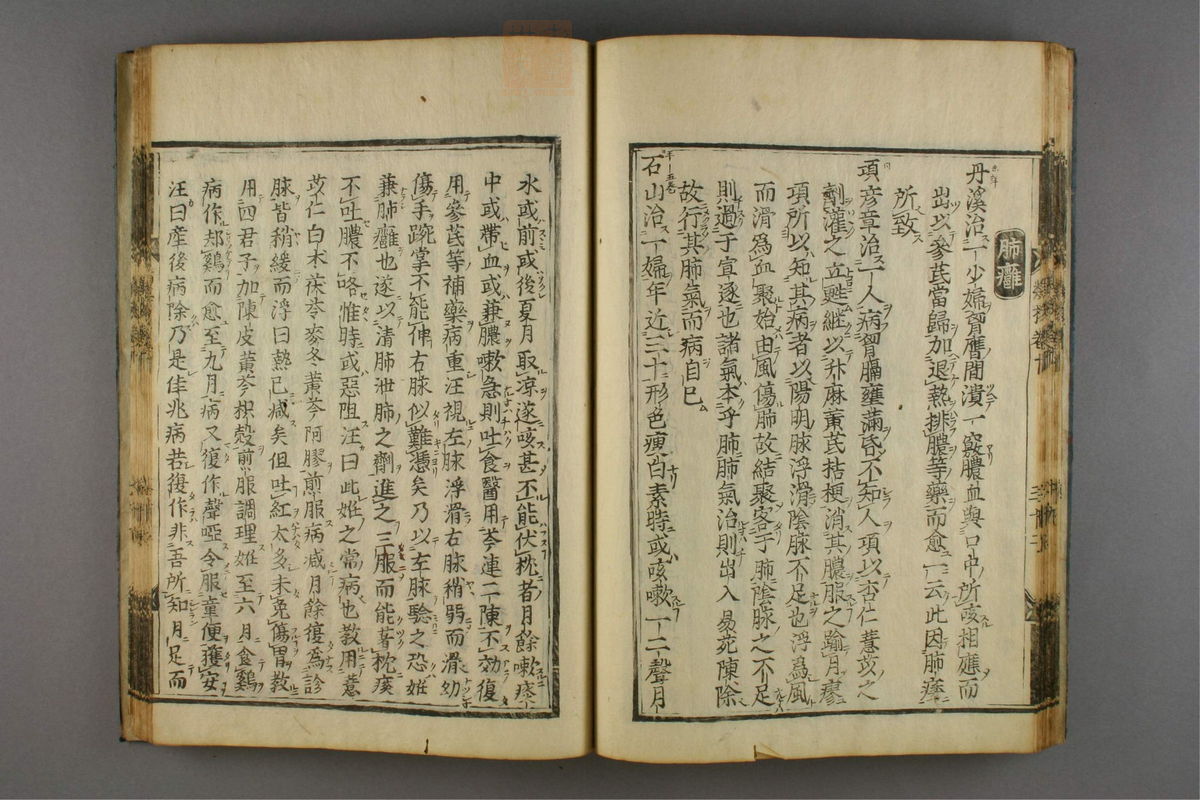 肺癰
丹溪治一少婦胷膺間潰一竅膿血與口中所咳相應而
出以參芪當歸加退熱排膿等藥而愈云此因肺痿
所致
項彦章治一人病胷膈壅滿昏不知人項以杏仁薏苡之
劑灌之立甦継以升麻黄芪桔梗消其膿服之踰月瘳
項所以知其病者以陽明脉浮滑陰脉不足也浮爲風
而滑爲血聚始由風傷肺故結聚客于肺陰脉之不足
則過于宣逐也諸氣本乎肺肺氣治則出入易菀陳除
故行其肺氣而病自已
石山治一婦年近三十形色瘦白素時或咳嗽一二聲月
水或前或後夏月取凉遂咳甚不能伏枕者月餘嗽痰
中或帶血或兼膿嗽急則吐食醫用芩連二陳不効復
用參芪等補藥病重汪視左脉浮滑右脉稍弱而滑幼
傷手腕掌不能伸右脉似難憑矣乃以左脉驗之恐妊
兼肺癰也遂以清肺泄肺之劑進之三服而能著枕痰
不吐膿不咯惟時或惡阻汪曰此妊之常病也教用薏
苡仁白朮茯苓麥冬黄芩阿膠煎服病減月餘復爲診
脉皆稍緩而浮曰熱已減矣但吐紅太多未免傷胃教
用四君子加陳皮黄芩枳殼煎服調理妊至六月食鷄
病作却鷄而愈至九月病又復作聲啞令服童便獲安
汪曰産後病除乃是佳兆病若復作非吾所知月足而